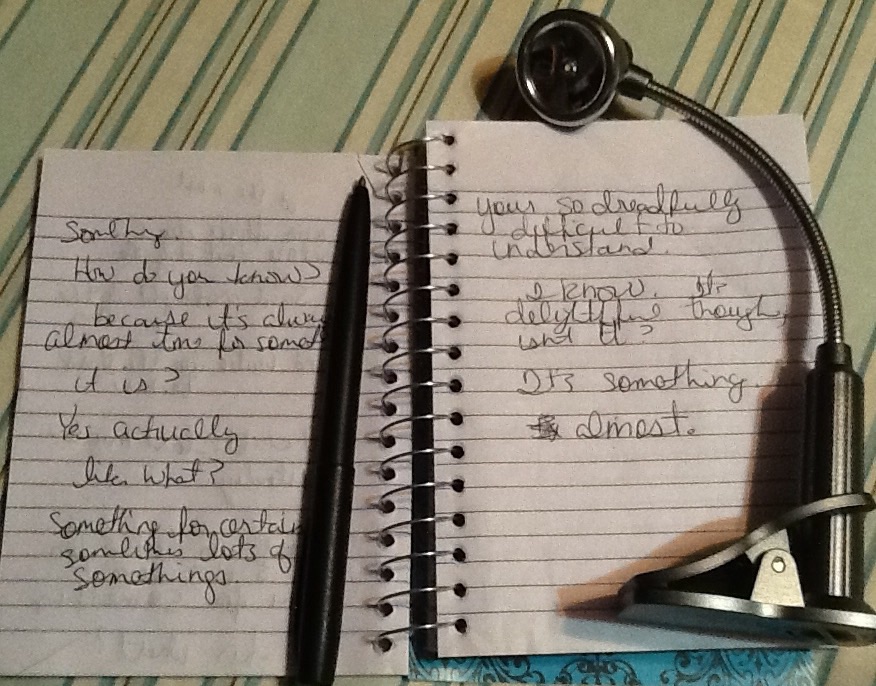 Somthing.
How do you know?
because it's alway
almost time for somet
it is?
Yes actually
like what?
Something for certain
somtimes lots of
somethings.
your so dreadfully
difficult to
understand.
I know. It's
delightful though,
isnt it?
It's something.
almost.